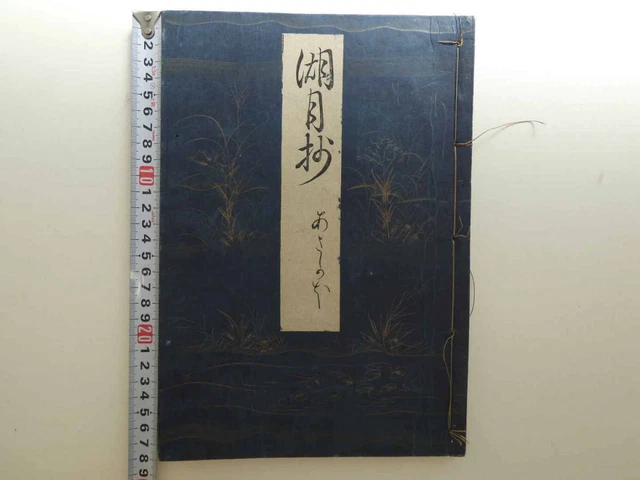 湖月抄
あさかほ
2
3
4
5
6
7
8
9
10
1
2
3
4
5
6
7
8
9
20
1
2
3
4
5
6
7
8
9